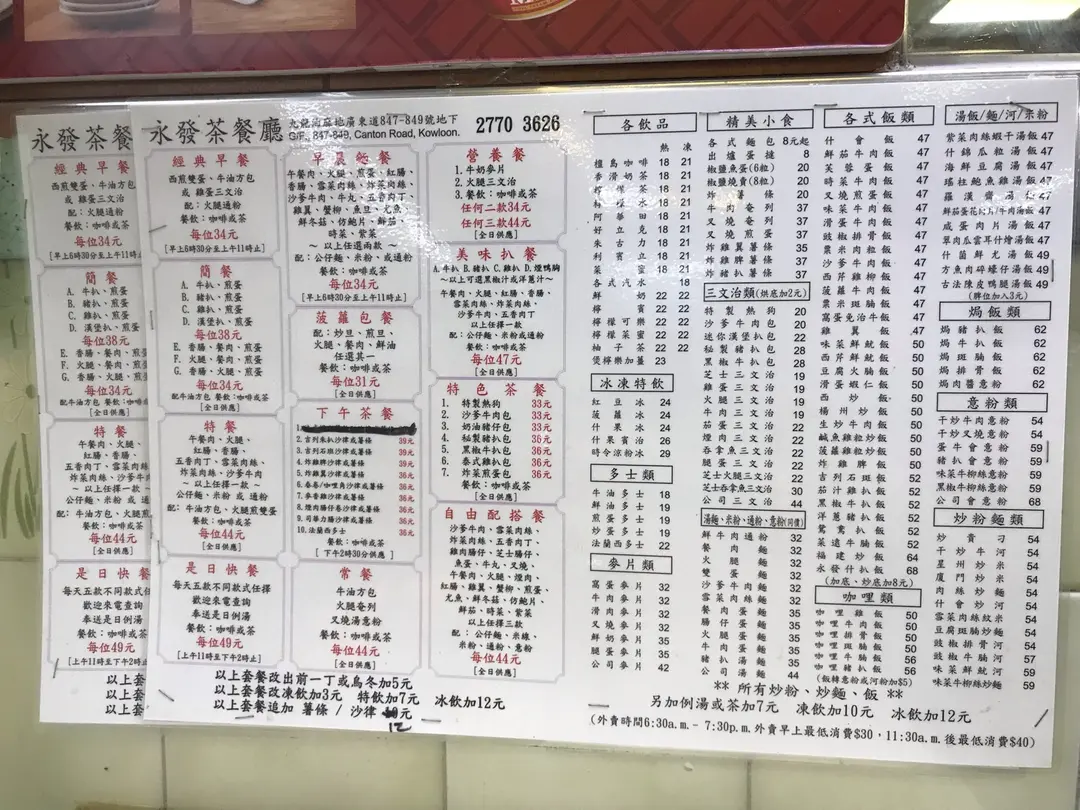 永發茶餐
經典早餐
西煎雙蛋、牛油方包
或 雞蛋三文治
配：火腿通粉
餐飲：咖啡或茶
每位34元
[早上6時30分至上午11時
簡餐
A. 牛扒、煎蛋
B. 豬扒、煎蛋
C. 雞扒、煎蛋
D. 漢堡扒、煎蛋
每位38元
E. 香腸、餐肉、煎蛋
F. 火腿、餐肉、煎蛋
G. 香腸、火腿、煎蛋
每位34元
配牛油方包 餐飲：咖啡
[全日供應]
特餐
午餐肉、火腿、
紅腸、香腸、
五香肉丁、雪菜肉絲、
炸菜肉絲、沙爹牛肉
～ 以上任擇一款 ～
公仔麵、米粉 或 通粉
配：牛油方包、火腿
餐飲：咖啡或茶
每位44元
[全日供應]
是日快餐
每天五款不同款式任
歡迎來電查詢
奉送是日例湯
餐飲：咖啡或茶
每位49元
[上午11時至下午2時
以上套
以上套
以上套
永發茶餐廳
九龍油麻地廣東道847-849號地下
G/F., 847-849, Canton Road, Kowloon.
2770 3626
經典早餐
西煎雙蛋、牛油方包
或 雞蛋三文治
配：火腿通粉
餐飲：咖啡或茶
每位34元
[早上6時30分至上午11時止]
簡餐
A. 牛扒、煎蛋
B. 豬扒、煎蛋
C. 雞扒、煎蛋
D. 漢堡扒、煎蛋
每位38元
E. 香腸、餐肉、煎蛋
F. 火腿、餐肉、煎蛋
G. 香腸、火腿、煎蛋
每位34元
配牛油方包 餐飲：咖啡或茶
[全日供應]
特餐
午餐肉、火腿、
紅腸、香腸、
五香肉丁、雪菜肉絲、
炸菜肉絲、沙爹牛肉
～ 以上任擇一款 ～
公仔麵、米粉 或 通粉
配：牛油方包、火腿煎雙蛋
餐飲：咖啡或茶
每位44元
[全日供應]
是日快餐
每天五款不同款式任擇
歡迎來電查詢
奉送是日例湯
餐飲：咖啡或茶
每位49元
[上午11時至下午2時止]
早晨麵餐
午餐肉、火腿、煎蛋、紅腸、
香腸、雪菜肉絲、炸菜肉絲、
沙爹牛肉、牛丸、五香肉丁、
雞翼、蟹柳、魚旦、尤魚、
鮮冬菇、仿鮑片、鮮茄、
時菜、紫菜
～ 以上任選兩款 ～
配：公仔麵、米粉、或通粉
餐飲：咖啡或茶
每位34元
[早上6時30分至上午11時止]
菠蘿包餐
配：炒旦、煎旦、
火腿、餐肉、鮮油
任選其一
餐飲：咖啡或茶
每位31元
[全日供應]
下午茶餐
1.
2. 吉列朱扒沙律或薯條 39元
3. 吉列石班沙律或薯條 39元
4. 炸雞脾沙律或薯條 39元
5. 炸雞翼沙律或薯條 36元
6. 春卷/咖喱角沙律或薯條 36元
7. 拳香雞沙律或薯條 36元
8. 煙肉腸仔卷沙律或薯條 36元
9. 司華力腸沙律或薯條 36元
10. 法蘭西多士 36元
[ 下午2時30分供應 ]
常餐
牛油方包
火腿奄列
叉燒湯意粉
餐飲：咖啡或茶
每位44元
[全日供應]
營養餐
1. 牛奶麥片
2. 火腿三文治
3. 餐飲：咖啡或茶
任何二款34元
任何三款44元
[全日供應]
美味扒餐
A. 牛扒 B. 豬扒 C. 雞扒 D. 煙鴨胸
～以上可選黑椒汁或洋蔥汁～
午餐肉、火腿、紅腸、香腸、
雪菜肉絲、炸菜肉絲、
沙爹牛肉、五香肉丁
以上任擇一款
配：公仔麵、米粉或通粉
餐飲：咖啡或茶
每位47元
[全日供應]
特色茶餐
1. 特製熱狗 33元
2. 沙爹牛肉包 33元
3. 奶油豬仔包 33元
4. 秘製豬扒包 36元
5. 黑椒牛扒包 36元
6. 泰式雞扒包 36元
7. 炸菜煎蛋包 36元
餐飲：咖啡或茶
[全日供應]
自由配搭餐
沙爹牛肉、雪菜肉絲、
炸菜肉絲、五香肉丁、
雞肉腸仔、芝士腸仔、
魚蛋、牛丸、叉燒、
午餐肉、火腿、煙肉、
紅腸、雞翼、蟹柳、煎蛋、
尤魚、鮮冬菇、仿鮑片、
鮮茄、時菜、紫菜
以上任擇三款
配：公仔麵、米線、
米粉、通粉、意粉
每位44元
[全日供應]
以上套餐改出前一丁或烏冬加5元
以上套餐改凍飲加3元 特飲加7元 冰飲加12元
以上套餐追加 薯條 / 沙律 元
12
各飲品
熱 凍
檀島咖啡 18 21
香滑奶茶 18 21
檸檬茶 18 21
檸檬水 18 21
阿華田 18 21
好立克 18 21
朱古力 18 21
利賓立 18 21
菜蜜 18 21
各式汽水 18
鮮奶 22 22
檸賓 22 22
檸檬可樂 22 22
柚子茶 22 22
煲檸樂加薑 23
冰凍特飲
紅豆冰 24
菠蘿冰 24
什果冰 24
什果賓治 26
時令涼粉冰 29
多士類
牛油多士 18
鮮油多士 19
煎蛋多士 19
炒蛋多士 19
法蘭西多士 22
麥片類
窩蛋麥片 32
牛肉麥片 32
滑肉麥片 32
叉燒麥片 32
鮮奶麥片 35
腿蛋麥片 35
公司麥片 42
精美小食
各式麵包 8元起
出爐蛋撻 8
椒鹽魚蛋(6粒) 20
椒鹽燒賣(8粒) 20
炸薯條 20
牛肉奄列 37
叉燒奄列 37
叉燒煎蛋 37
炸雞翼薯條 35
炸雞脾薯條 35
炸豬扒薯條 37
三文治類(烘底加2元)
特製熱狗 20
沙爹牛肉包 20
迷你漢堡扒包 22
秘製豬扒包 28
黑椒牛扒包 28
芝士三文治 19
雞蛋三文治 19
火腿三文治 19
牛肉三文治 24
叉燒三文治 22
煙肉三文治 22
吞拿魚三文治 22
腿蛋三文治 22
芝士火腿三文治 22
芝士吞拿魚三文治 30
公司三文治 44
湯麵、米粉、通粉、意粉(同價)
鮮牛肉通粉 32
餐肉麵 32
火腿麵 32
雙蛋麵 32
沙爹牛肉麵 32
雪菜肉絲麵 32
餐肉蛋麵 35
腸仔蛋麵 35
火腿蛋麵 35
牛肉蛋麵 35
豬扒湯麵 35
公司湯麵 44
各式飯類
什會飯 47
鮮茄牛肉飯 47
芙蓉蛋飯 47
時菜牛肉飯 47
叉燒煎蛋飯 47
滑蛋牛肉飯 47
豉椒排骨飯 47
粟米肉粒飯 47
沙爹牛肉飯 47
西芹雞柳飯 47
菠蘿牛肉飯 47
粟米斑腩飯 47
窩蛋免治牛飯 47
雞翼飯 47
味菜鮮魷飯 50
西芹鮮魷飯 50
豆腐火腩飯 50
滑蛋蝦仁飯 50
西炒飯 50
楊州炒飯 50
生炒牛肉飯 50
鹹魚雞粒炒飯 50
菠蘿雞粒炒飯 50
炸雞脾飯 50
吉列石斑飯 52
茄汁雞扒飯 52
黑椒牛扒飯 52
洋蔥豬扒飯 52
鴛鴦扒飯 52
菜遠牛腩飯 52
福建炒飯 64
永發什扒飯 68
(加底、炒底加8元)
咖哩類
咖哩雞飯 50
咖哩牛肉飯 50
咖哩排骨飯 50
咖哩牛腩飯 56
咖哩豬扒飯 56
(飯轉意粉或河粉加$5)
湯飯/麵/河/米粉
紫菜肉絲蝦干湯飯 47
什錦瓜粒湯飯 47
海鮮豆腐湯飯 47
瑤柱鮑魚雞湯飯 47
羅漢齋湯飯 47
鮮茄蛋花肉片/牛肉湯飯 47
咸蛋肉片湯飯 47
草肉瓜雲耳什燴湯飯 47
什菌鮮尤湯飯 49
方魚肉碎蠔仔湯飯 49
古法陳皮鴨腿湯飯 49
(髀位加入3元)
焗飯類
焗豬扒飯 62
焗牛扒飯 62
焗斑腩飯 62
焗排骨飯 62
焗肉醬意粉 62
意粉類
干炒牛肉意粉 54
干炒叉燒意粉 54
蛋牛會意粉 59
豬扒會意粉 59
味菜牛柳絲意粉 59
黑椒牛柳絲意粉 59
公司會意粉 68
炒粉麵類
炒貴刁 54
干炒牛河 54
星州炒米 54
廈門炒米 54
肉絲炒麵 54
什會炒河 54
雪菜肉絲紋米 54
豆腐斑腩炒麵 54
豉椒排骨河 54
豉椒牛腩河 57
味菜鮮魷河 59
味菜牛柳絲炒麵 59
** 所有炒粉、炒麵、飯 **
另加例湯或茶加7元 凍飲加10元 冰飲加12元
(外賣時間6:30a.m. - 7:30p.m. 外賣早上最低消費$30，11:30a.m. 後最低消費$40)